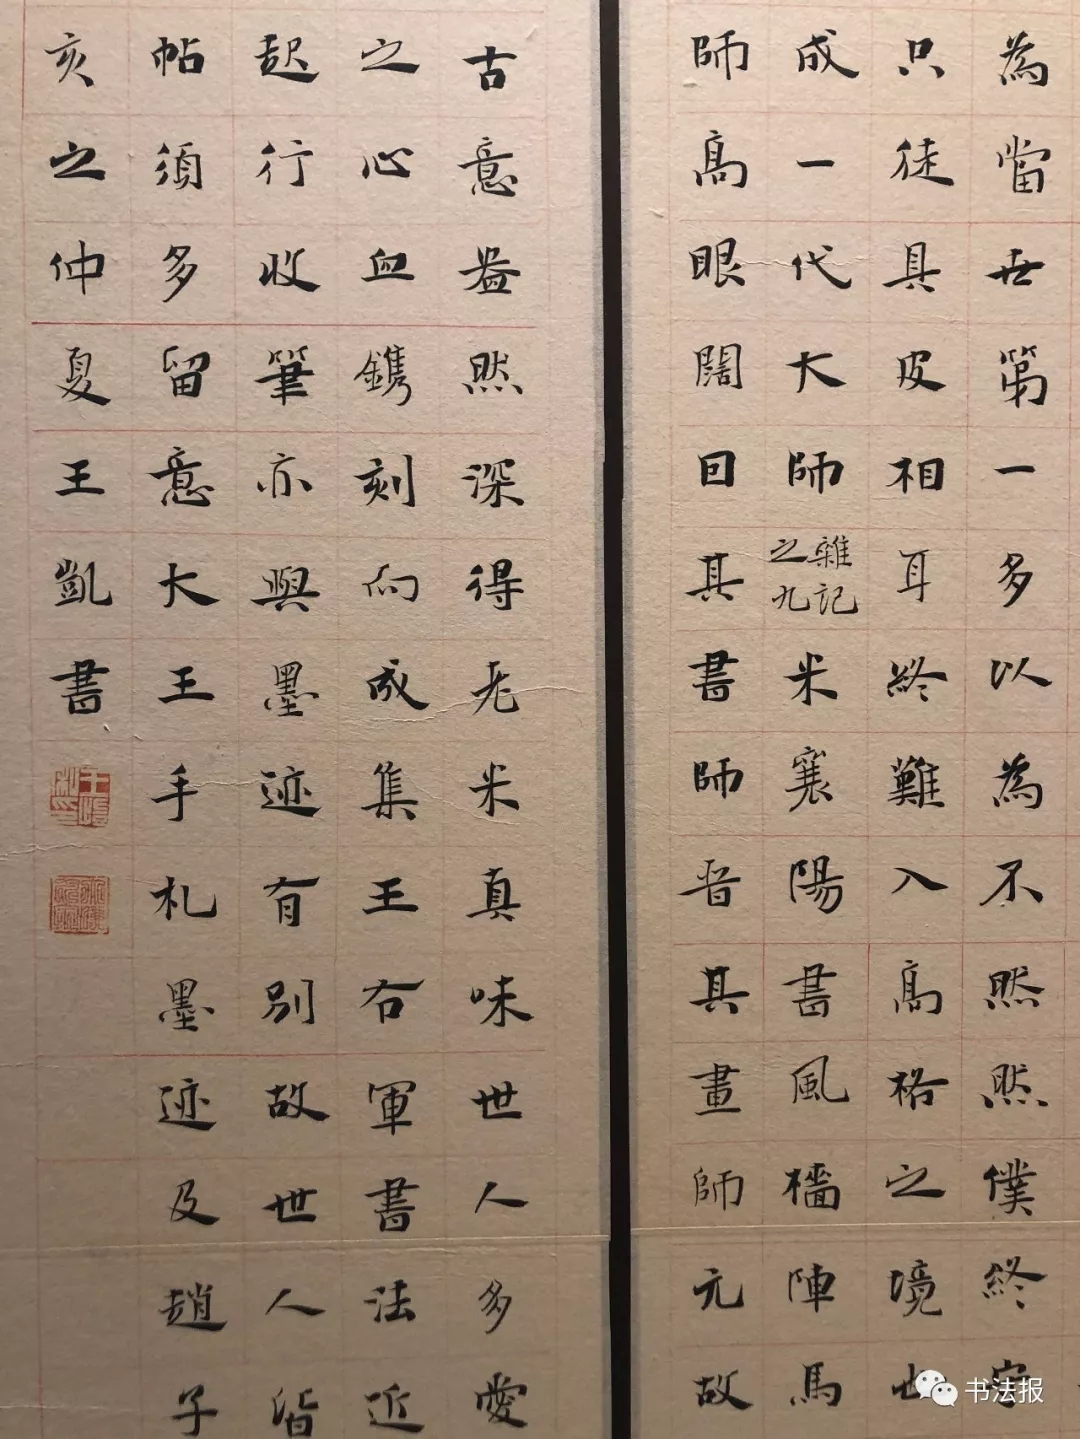 為當世第一多以為不然然僕終守
只徒具皮相耳終難入高格之境也
成一代大師雜記之九米襄陽書風檣陣馬
師高眼闊目其書師晉其畫師元故
古意盎然深得老米真味世人多愛
之心血鐫刻而成集王右軍書法近
起行收筆亦與墨迹有別故世人皆
帖須多留意大王手札墨迹及趙子
亥之仲夏王凱書
书法报